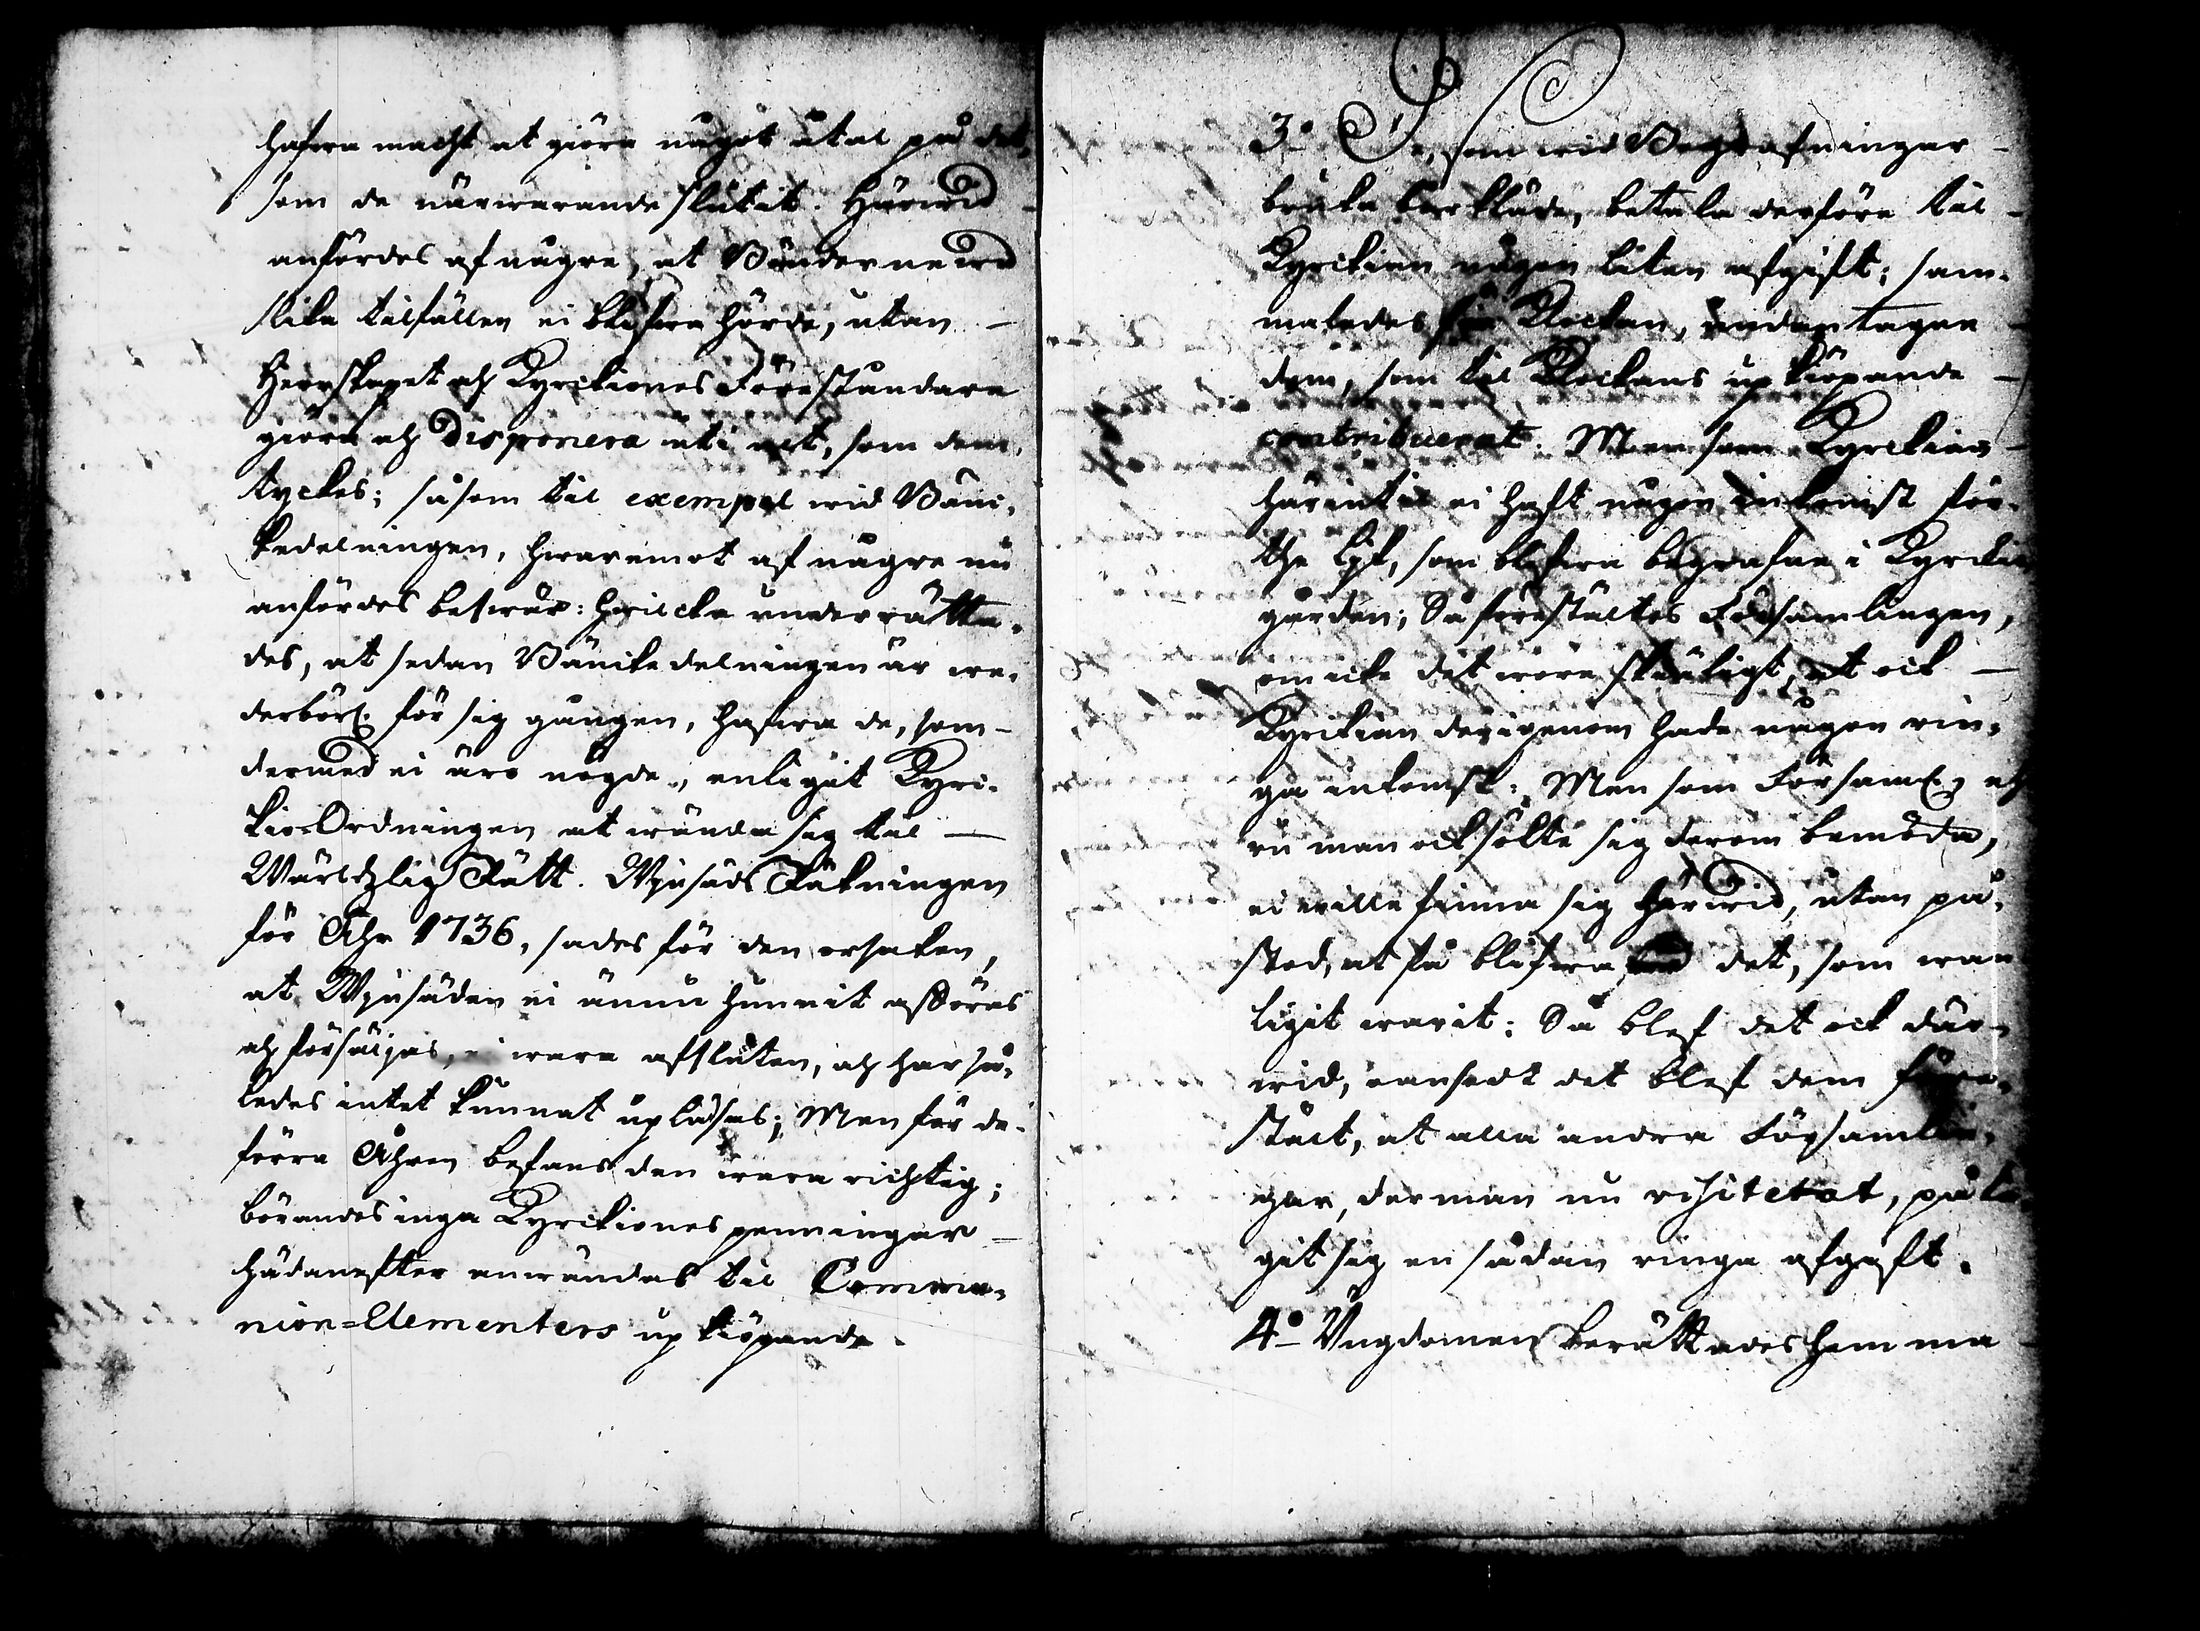 hafwa macht at giöra något åtal på det,
som de närwarande slutit. Härwid
anfördes af någre, at Bönderne wid
slika tilfällen ei blifwa hörde, utan
Herrskapet och Kyrckiones Föreståndare
giöra och disponera uti alt, som dem
tyckes; såsom til exempel wid Bänc-
kedelningen, hwaremot af någre nu
anfördes beswär: hwilcke underrätta-
des, at sedan Bänckedelningen är we-
derbörl. för sig gången, hafwa de, som
dermed ei äro nögde, enligit Kyrc-
kioOrdningen at wända sig til
Wärldzlig Rätt. Wijnsäds Räkningen
för Åhr 1736, sades för den orsaken,
at Wijnsäden ei ännu hunnit afföras
och försäljas, ei wara afsluten, och har så-
ledes intet kunnat upläsas; Men för de
förra Åhren befans den wara richtig;
börandes inga Kyrckiones penningar
hädanefter anwändas til Commu-
nion=Elementers upkiöpande.
3o De, som wid Begrafningar
bruka bårkläde, betala derföre til
Kyrckian någon liten afgift; sam-
maledes för Klockan, undantagne
dem, som til Klockans upkiöpande
contribuerat. Men som Kyrckian
härintil ei haft någon inkomst för
the lijk, som blifwa begrafne i Kyrckio
gården; Så föreställtes Församlingen,
om icke det wore skiäligt, at ock
Kyrckian derigenom hade någon rin-
ga inkomst: Men som Församl., och
ru man ock sökte sig derom bemöda,
ei wille finna sig härwid, utan på-
stod, at få blifwa wid det, som wan
ligit warit: Så blef det ock där-
wid, oansedt det blef dem före-
stält, at alla andra Församlin-
gar, der man nu visiterat, påta
git sig en sådan ringa afgift.
4o Ungdomen berättades hemma